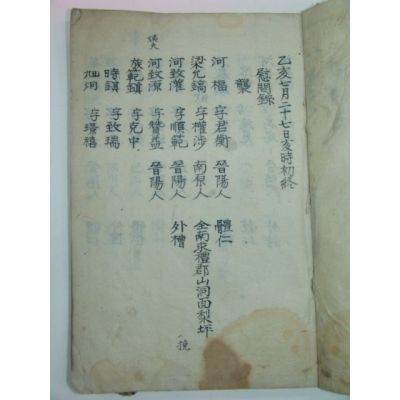 乙亥七月二十七日亥時初終
慰問錄
襲
河 榲 字君衡 晉陽人 體仁
梁允鎬 字權涉 南原人 全南求禮郡山洞面梨坪
河致濩 字順範 晉陽人 外槽
河致源 字贊益 晉陽人
族範鎭 字克中
時鎭 字致瑞
字璟禧
挽